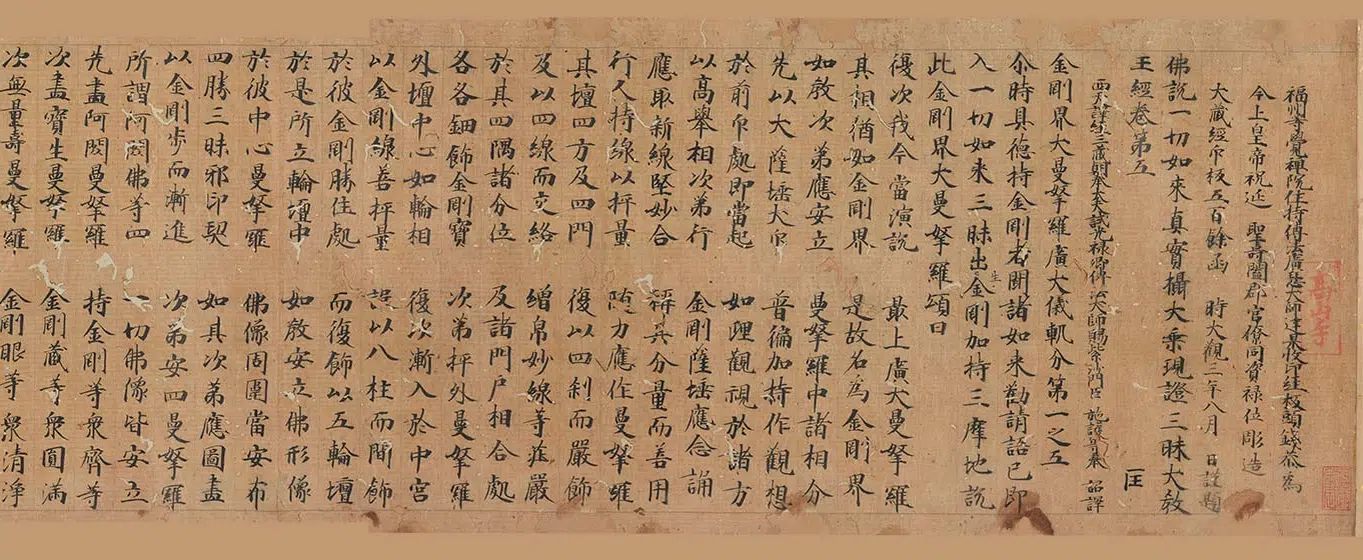 福州等覺禪院住持傳法廣慧大師達杲收印經板頭錢恭為
今上皇帝祝延 聖壽闔郡官僚同資祿位彫造
大藏經印板五百餘函 時大觀三年八月 日謹題
佛說一切如來真實攝大乘現證三昧大教
王經卷第五 匡
西天譯經三藏朝奉大夫試光祿卿傳法大師賜紫沙門臣 施護等奉 詔譯
金剛界大曼拏羅廣大儀軌分第一之五
尒時具德持金剛者聞諸如来勸請語已即
入一切如来三昧出生金剛加持三摩地說
此金剛界大曼拏羅頌曰
復次我今當演說 最上廣大曼拏羅
其相猶如金剛界 是故名為金剛界
如教次苐應安立 曼拏羅中諸相分
先以大薩埵大印 普徧加持作觀想
於前印處即當起 如理觀視於諸方
以高舉相次苐行 金剛薩埵應念誦
應取新線堅妙合 稱其分量而善用
行人持線以抨量 隨力應作曼拏羅
其壇四方及四門 復以四刹而嚴飾
及以四線而交絡 繒帛妙線等莊嚴
於其四隅諸分位 及諸門戶相合處
各各鈿飾金剛寶 次苐抨外曼拏羅
外壇中心如輪相 復次漸入於中宮
以金剛線善抨量 誤以八柱而間飾
於彼金剛勝住處 而復飾以五輪壇
於是所立輪壇中 如教安立佛形像
於彼中心曼拏羅 佛像周圍當安布
四勝三昧邪印契 如其次苐應圖畫
以金剛步而漸進 次苐安四曼拏羅
所謂阿閦佛等四 一切佛像皆安立
先畫阿閦曼拏羅 持金剛等衆齊等
次畫寶生曼拏羅 金剛藏等衆圓滿
次無量壽曼拏羅 金剛眼等衆清淨
高山寺